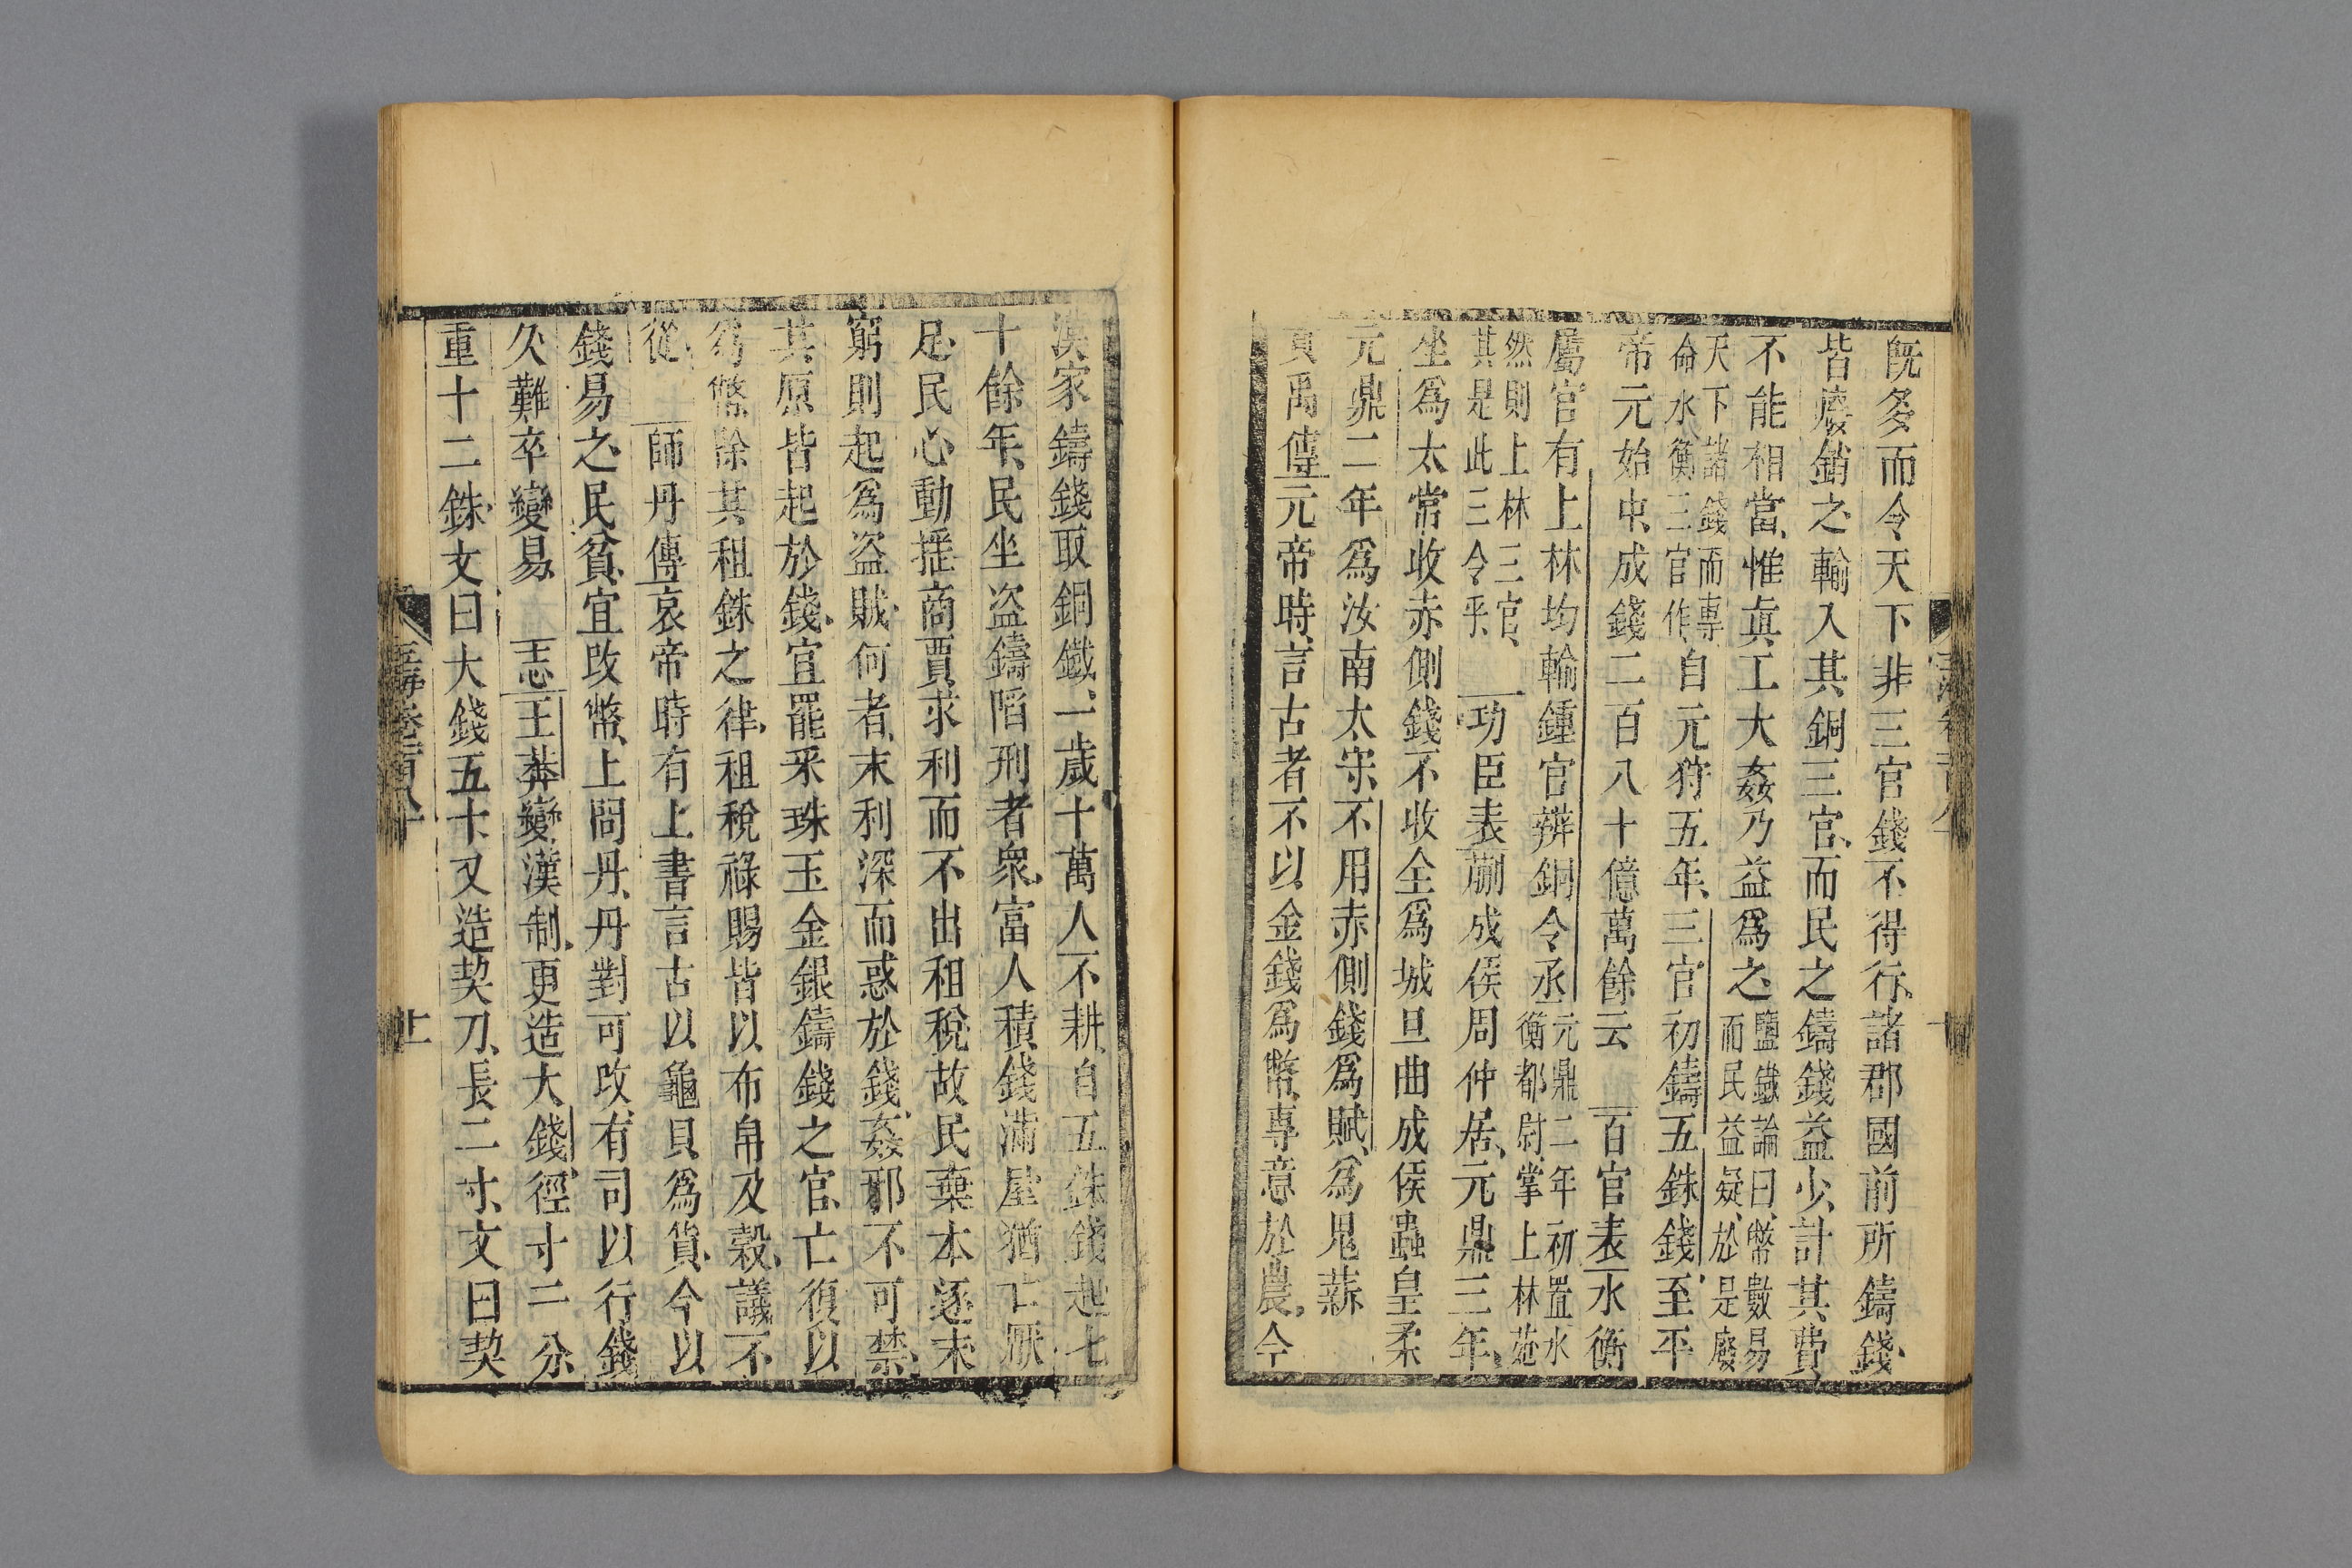 既多而令天下非三官錢不得行諸郡國前所鑄錢
皆廢銷之輸入其銅三官而民之鑄錢益少計其費
不能相當惟真工大姦乃益爲之鹽鐵論曰幣數易
而民益疑於是廢
天下諸錢而專
命水衡三官作自元狩五年三官初鑄五銖錢至平
帝元始中成錢二百八十億萬餘云 百官表水衡
屬官有上林均輸鍾官辨銅令丞元鼎二年初置水
衡都尉掌上林苑
然則上林三官
其是此三令乎 功臣表蒯成侯周仲居元鼎三年
坐爲太常收赤側錢不收全爲城旦曲成侯蟲皇柔
元鼎二年爲汝南太守不用赤側錢爲賦爲鬼薪
貢禹傳元帝時言古者不以金錢爲幣專意於農今
漢家鑄錢取銅鐵一歲十萬人不耕自五銖錢起七
十餘年民坐盜鑄陷刑者衆富人積錢滿屋猶亡厭
足民心動揺商賈求利而不出租稅故民棄本逐末
窮則起爲盜賊何者末利深而惑於錢姦邪不可禁
其原皆起於錢宜罷采珠玉金銀鑄錢之官亡復以
爲幣除其租銖之律租稅祿賜皆以布帛及穀議不
從 師丹傳哀帝時有上書言古以龜貝爲貨今以
錢易之民貧宜改幣上問丹丹對可改有司以行錢
久難卒變易 王志王莽變漢制更造大錢徑寸二分
重十二銖文曰大錢五十又造契刀長二寸文曰契
玉海卷一百八十
十一